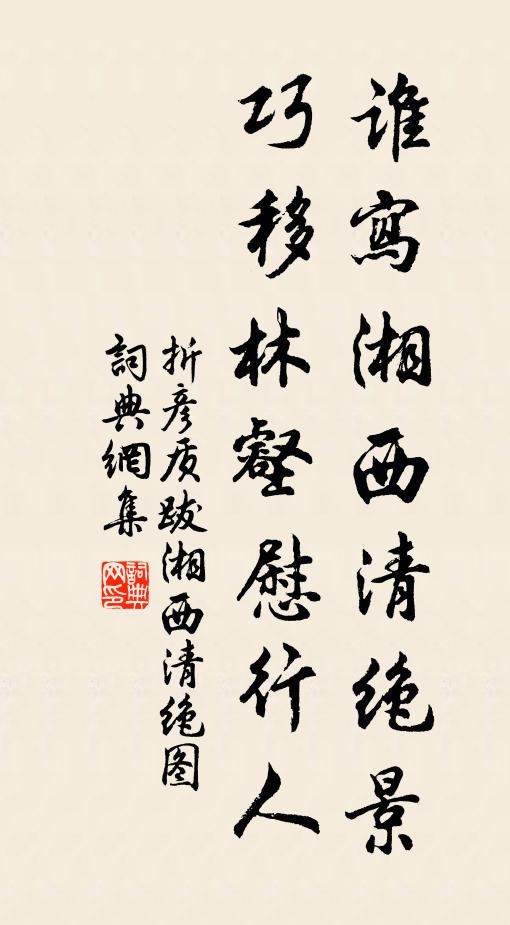 谁寫湘西清绝景
巧移林壑慰行人
折彦质跋湘西清绝图
詞典網集
詞典网印